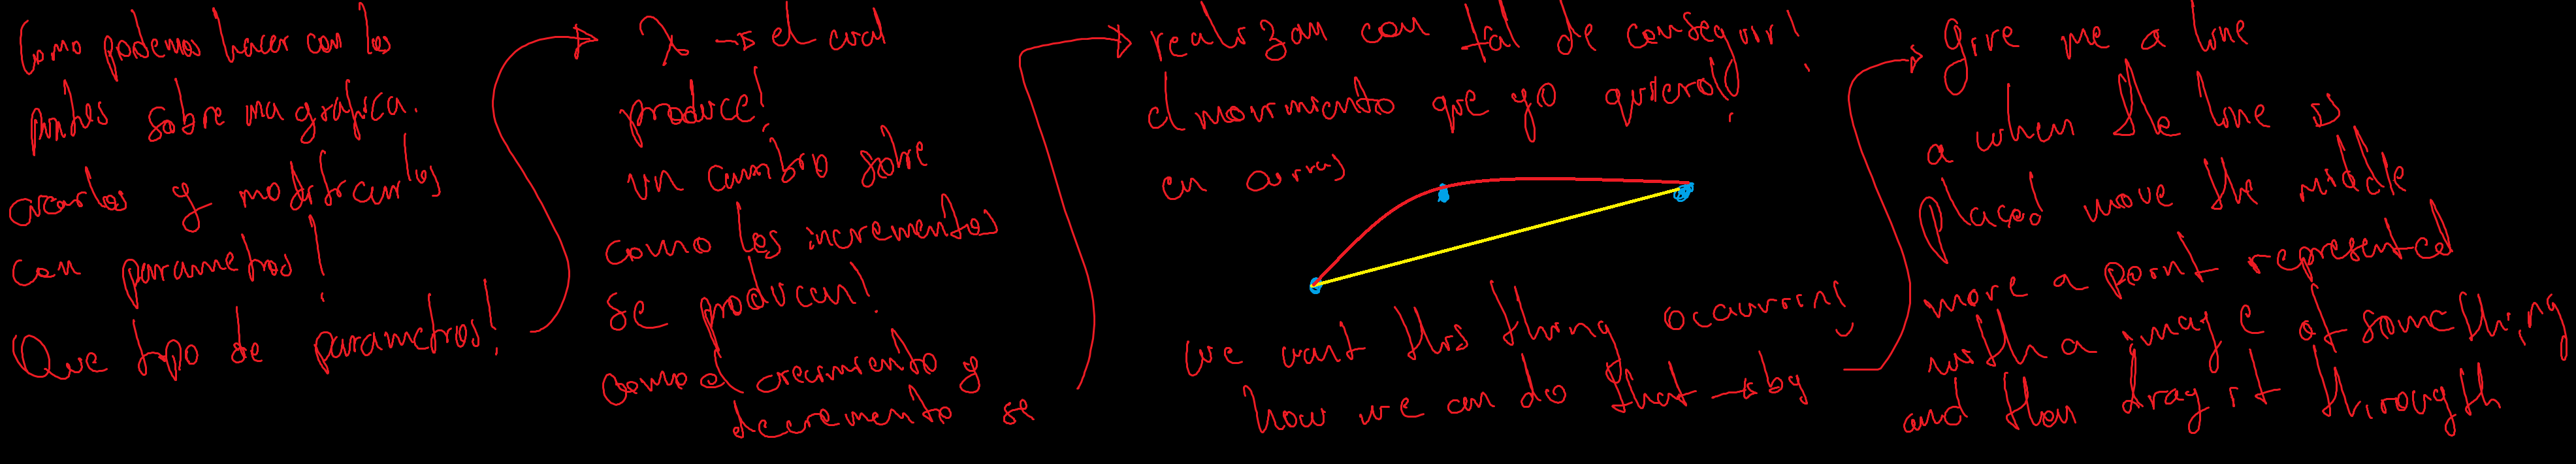 Como podemos hacer con los
puntos sobre una grafica.
crearlos y modificarlos
con parametros!
Que tipo de parametros!
λ → el cual
produce!
un cambio sobre
como los incrementos
se produzcan!
como el crecimiento y
decremento se
realizan con tal de conseguir!
el movimiento que yo quiero!
en
we want this thing occurring
how we can do that → by
Give me a line
a when the line is
placed move the middle
move a point represented
with a image of something
and then drag it through